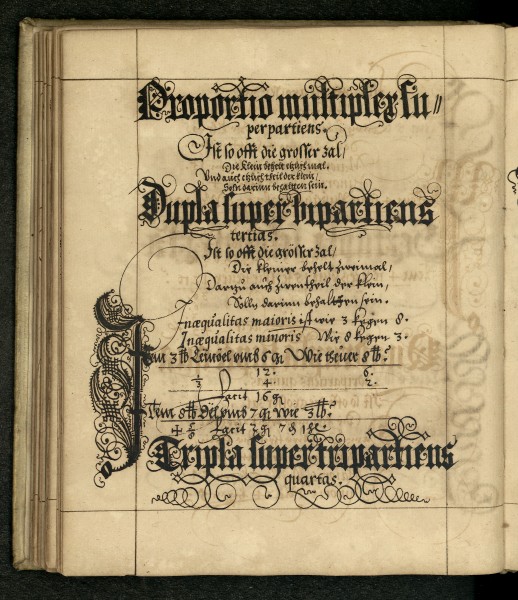 Proportio multiplex su⸗
perpartiens.
Ist so offt die grosser zal/
Die klein behelt etlich mal.
Und auch etlich theil der klein/
Solln darinn behalten sein.
Dupla super bipartiens
tertias.
Ist so offt die grösser zal/
Die kleiner behelt zweimal/
Darzu auch zwentheil der klein,
Solln darinn behalten sein.
Inæqualitas maioris ist wie 3 kegen 8.
Inæqualitas minoris Wie 8 kegen 3.
Item 3 ℔ umb 6 gl Wie theuer 8 ℔?
12. 6.
1/3 4 2.
Facit 16 gl
Item 8 ℔ umb 7 gl wie 3 ℔?
Facit 2 gl 7
Tripla supertripartiens
quartas.